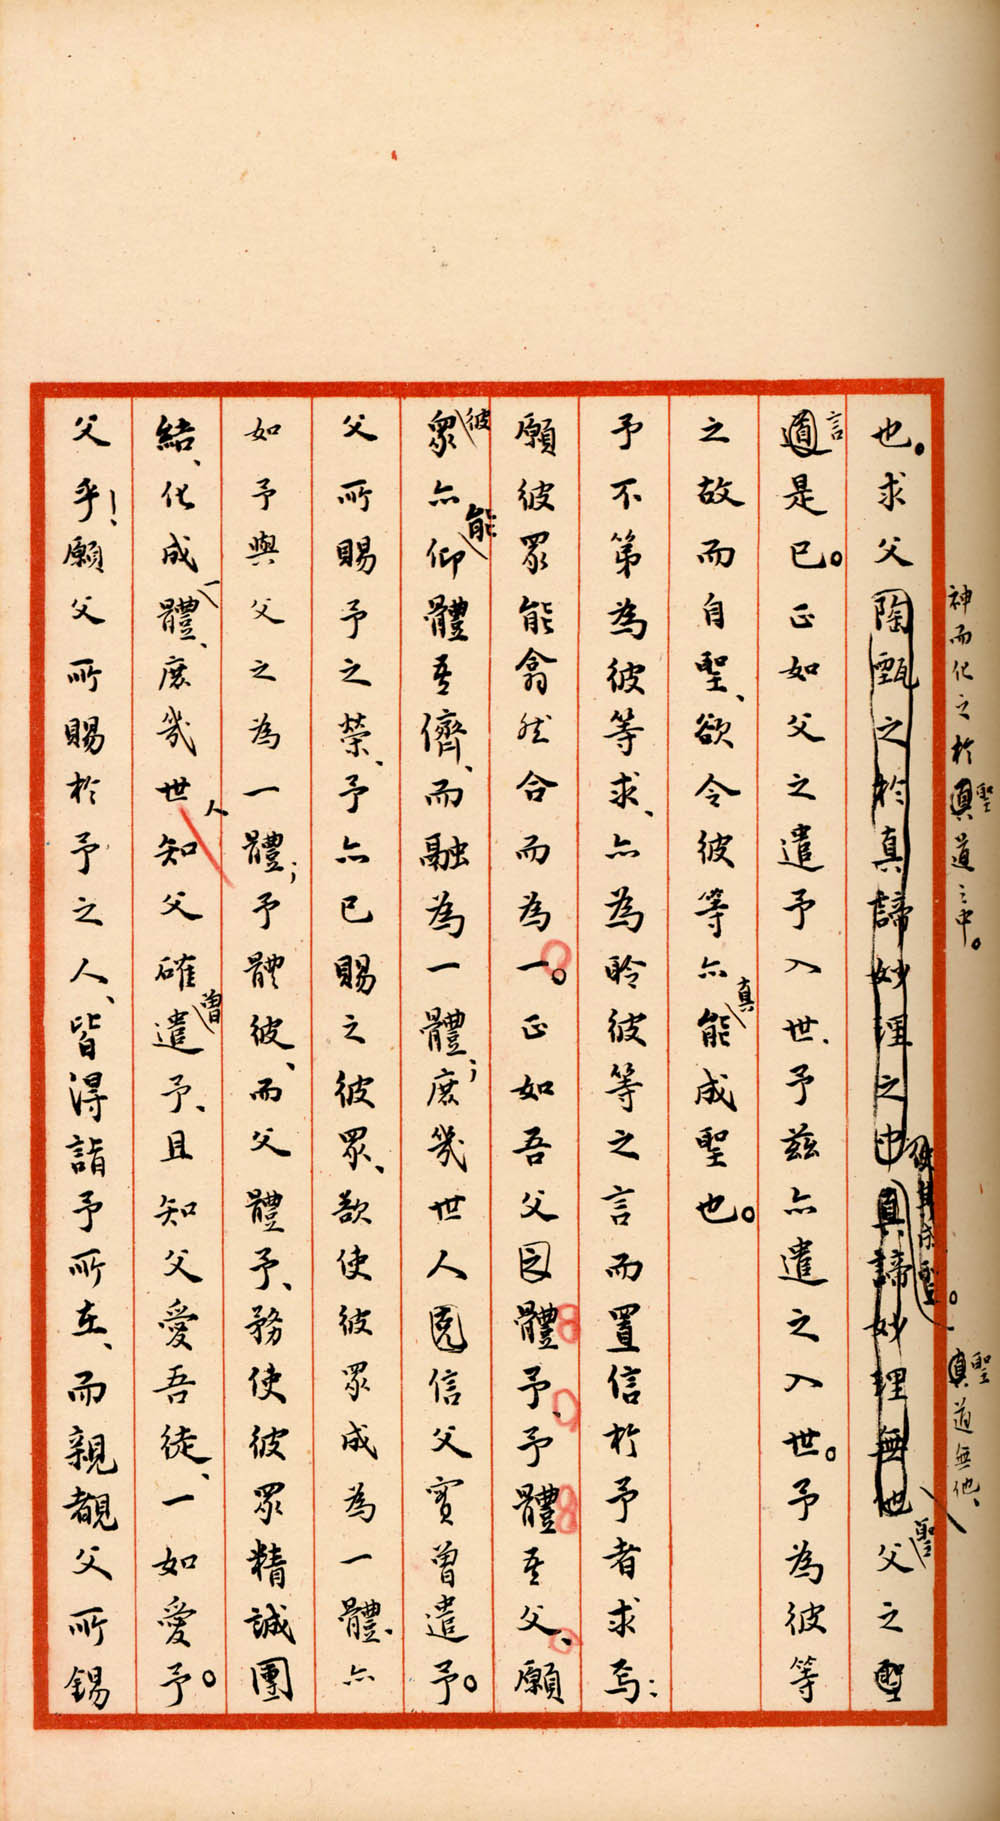 神而化之於真聖道之中。
一真聖道無他、
也。求父陶甄之於真諦妙理之中真諦妙理無他父之聖
使其成聖。
聖
道言是已。正如父之遣予入世、予茲亦遣之入世。予為彼等
之故而自聖、欲令彼等亦能真成聖也。
予不第為彼等求、亦為聆彼等之言而置信於予者求焉：
願彼眾能翕然合而為一。正如吾父之體予、予體吾父、願
彼眾亦能仰體吾儕、而融為一體；庶幾世人克信父實曾遣予。
父所賜予之榮、予亦已賜之彼眾、欲使彼眾成為一體、亦
如予與父之為一體；予體彼、而父體予、務使彼眾精誠團
結、化成一體、庶幾世人知父確曾遣予、且知父愛吾徒、一如愛予。
父乎！願父所賜於予之人、皆得詣予所在、而親覩父所錫